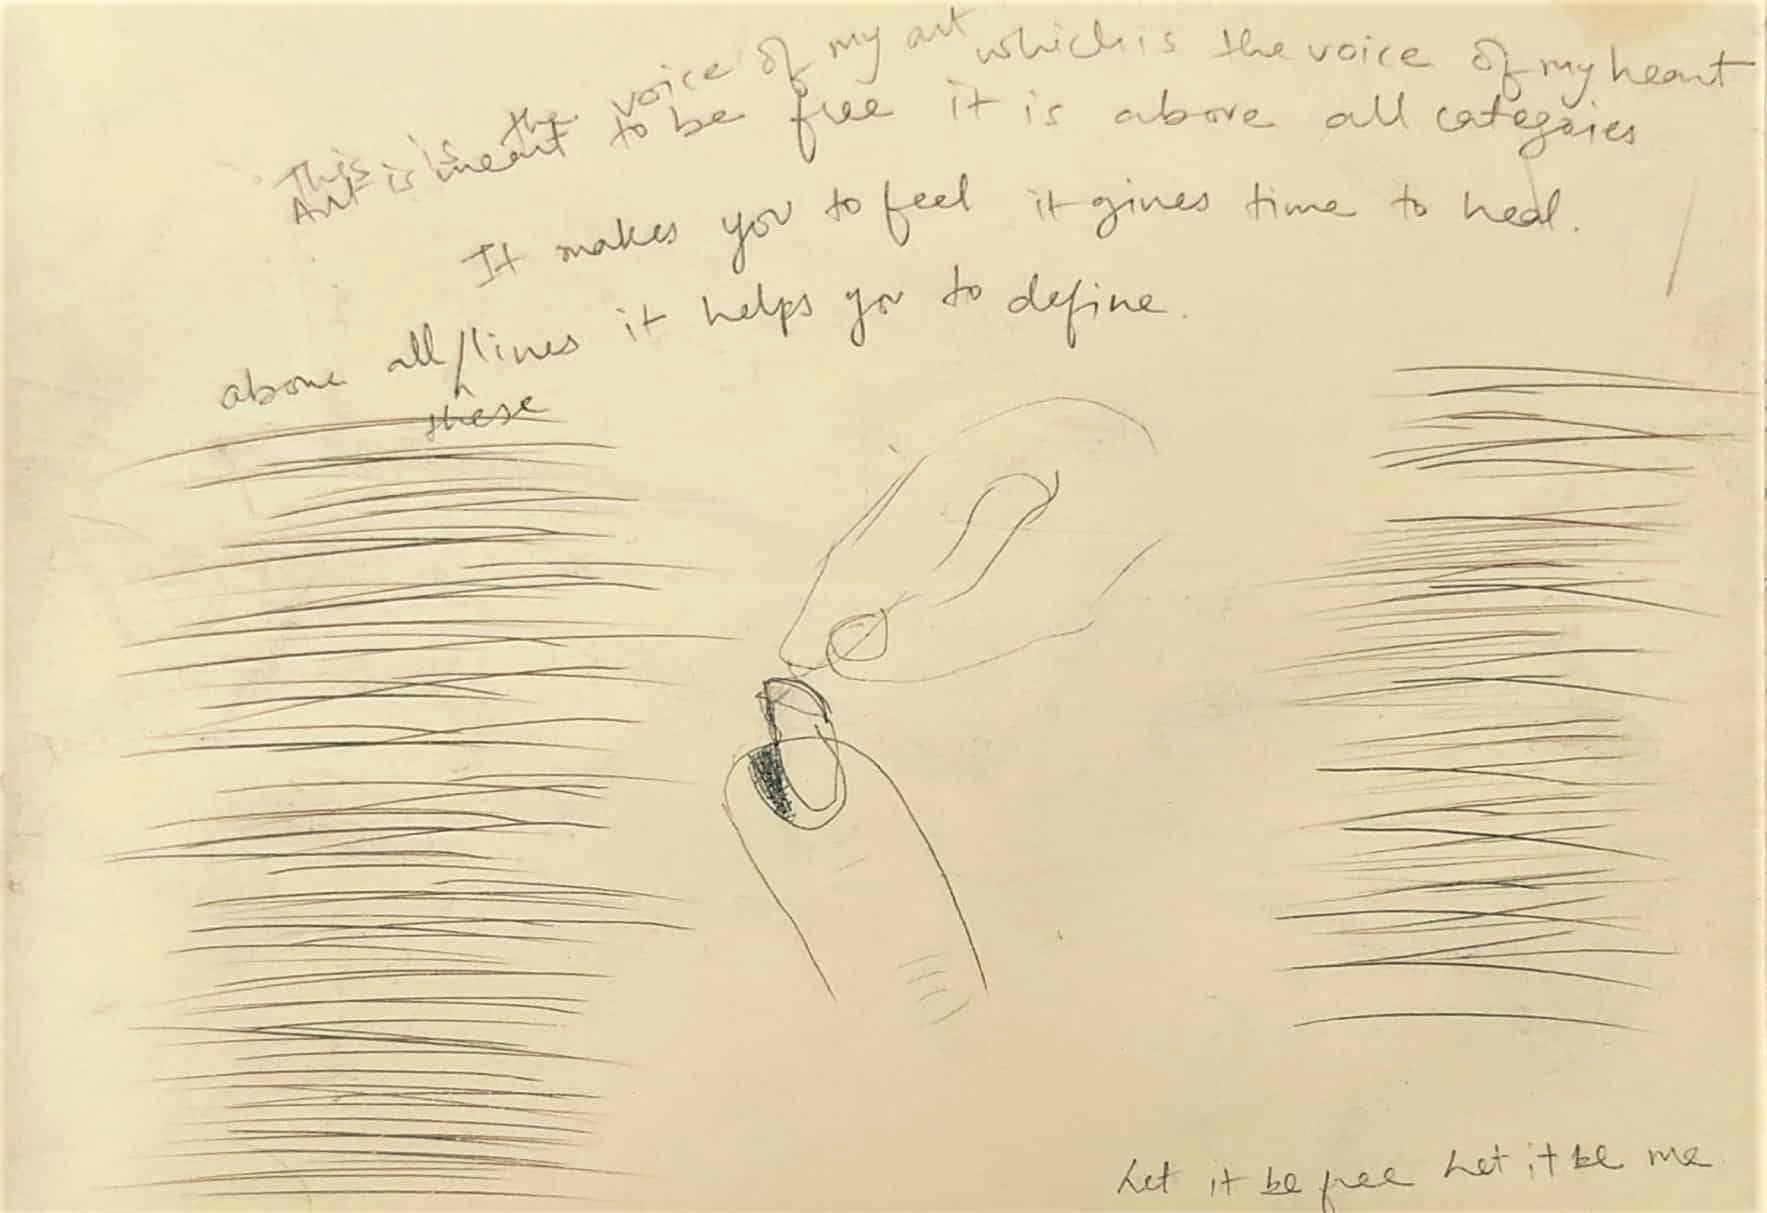 This is the voice of my art which is the voice of my heart
Art is meant to be free it is above all categories
It makes you to feel it gives time to heal.
above all/lines it helps you to define.
these
Let it be free Let it be me